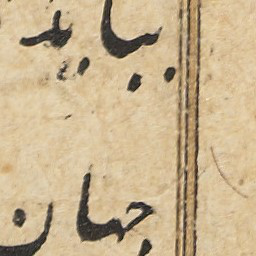 بباید
جهان